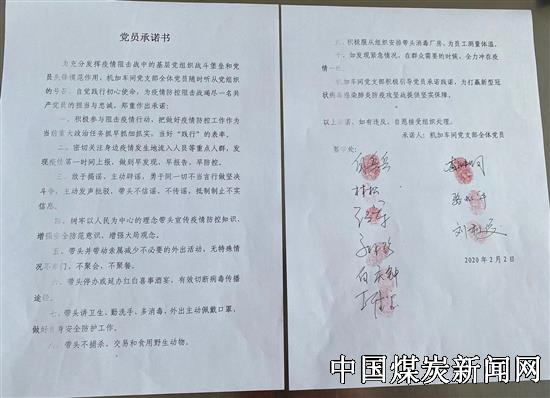 党员承诺书
为充分发挥疫情阻击战中的基层党组织战斗堡垒和党
员先锋模范作用，机加车间党支部全体党员随时听从党组织
的号召，自觉践行初心使命，为疫情防控阻击战竭尽一名共
产党员的担当与忠诚，郑重作出承诺：
一、积极参与阻击疫情行动，把做好疫情防控工作作为
当前重大政治任务抓早抓细抓实，当好“践行”的表率。
二、密切关注身边疫情发生地流入人员等重点人群，发
现疫情第一时间上报，做到早发现、早报告、早防控。
三、敢于揭谣、主动辟谣，勇于同一切不当言行做坚决
斗争，主动发声批驳，带头不信谣、不传谣，抵制制止不实
信息。
四、树牢以人民为中心的理念带头宣传疫情防控知识，
增强安全防范意识，增强大局观念。
五、带头并带动亲属减少不必要的外出活动，无特殊情
况不出门，不聚会，不聚餐。
六、带头停办或延办红白喜事酒宴，有效切断病毒传播
途径。
七、带头讲卫生、勤洗手、多消毒，外出主动佩戴口罩，
做好自身安全防护工作。
八、带头不捕杀、交易和食用野生动物。
九、积极服从组织安排带头消毒厂房，为员工测量体温。
十、如发现紧急情况，在群众需要的时候，全力冲在疫
情一
机加车间党支部积极引导党员承诺践诺，为打赢新型冠
状病毒感染肺炎防疫攻坚战提供坚实保障。
以上承诺，如有违反，自愿接受组织处理。
承诺人：机加车间党支部全体党员
签字处：
林松
2020年2月2日
中国煤炭新闻网